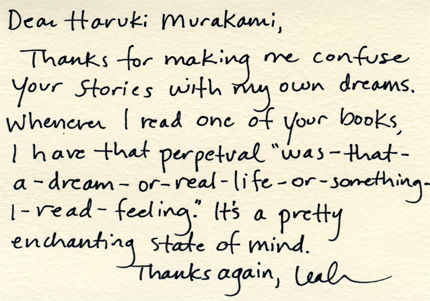 Dear Haruki Murakami,
Thanks for making me confuse
your stories with my own dreams.
Whenever I read one of your books,
I have that perpetual "was-that-
a-dream-or-real-life-or-something-
I-read-feeling." It's a pretty
enchanting state of mind.
Thanks again, Leah